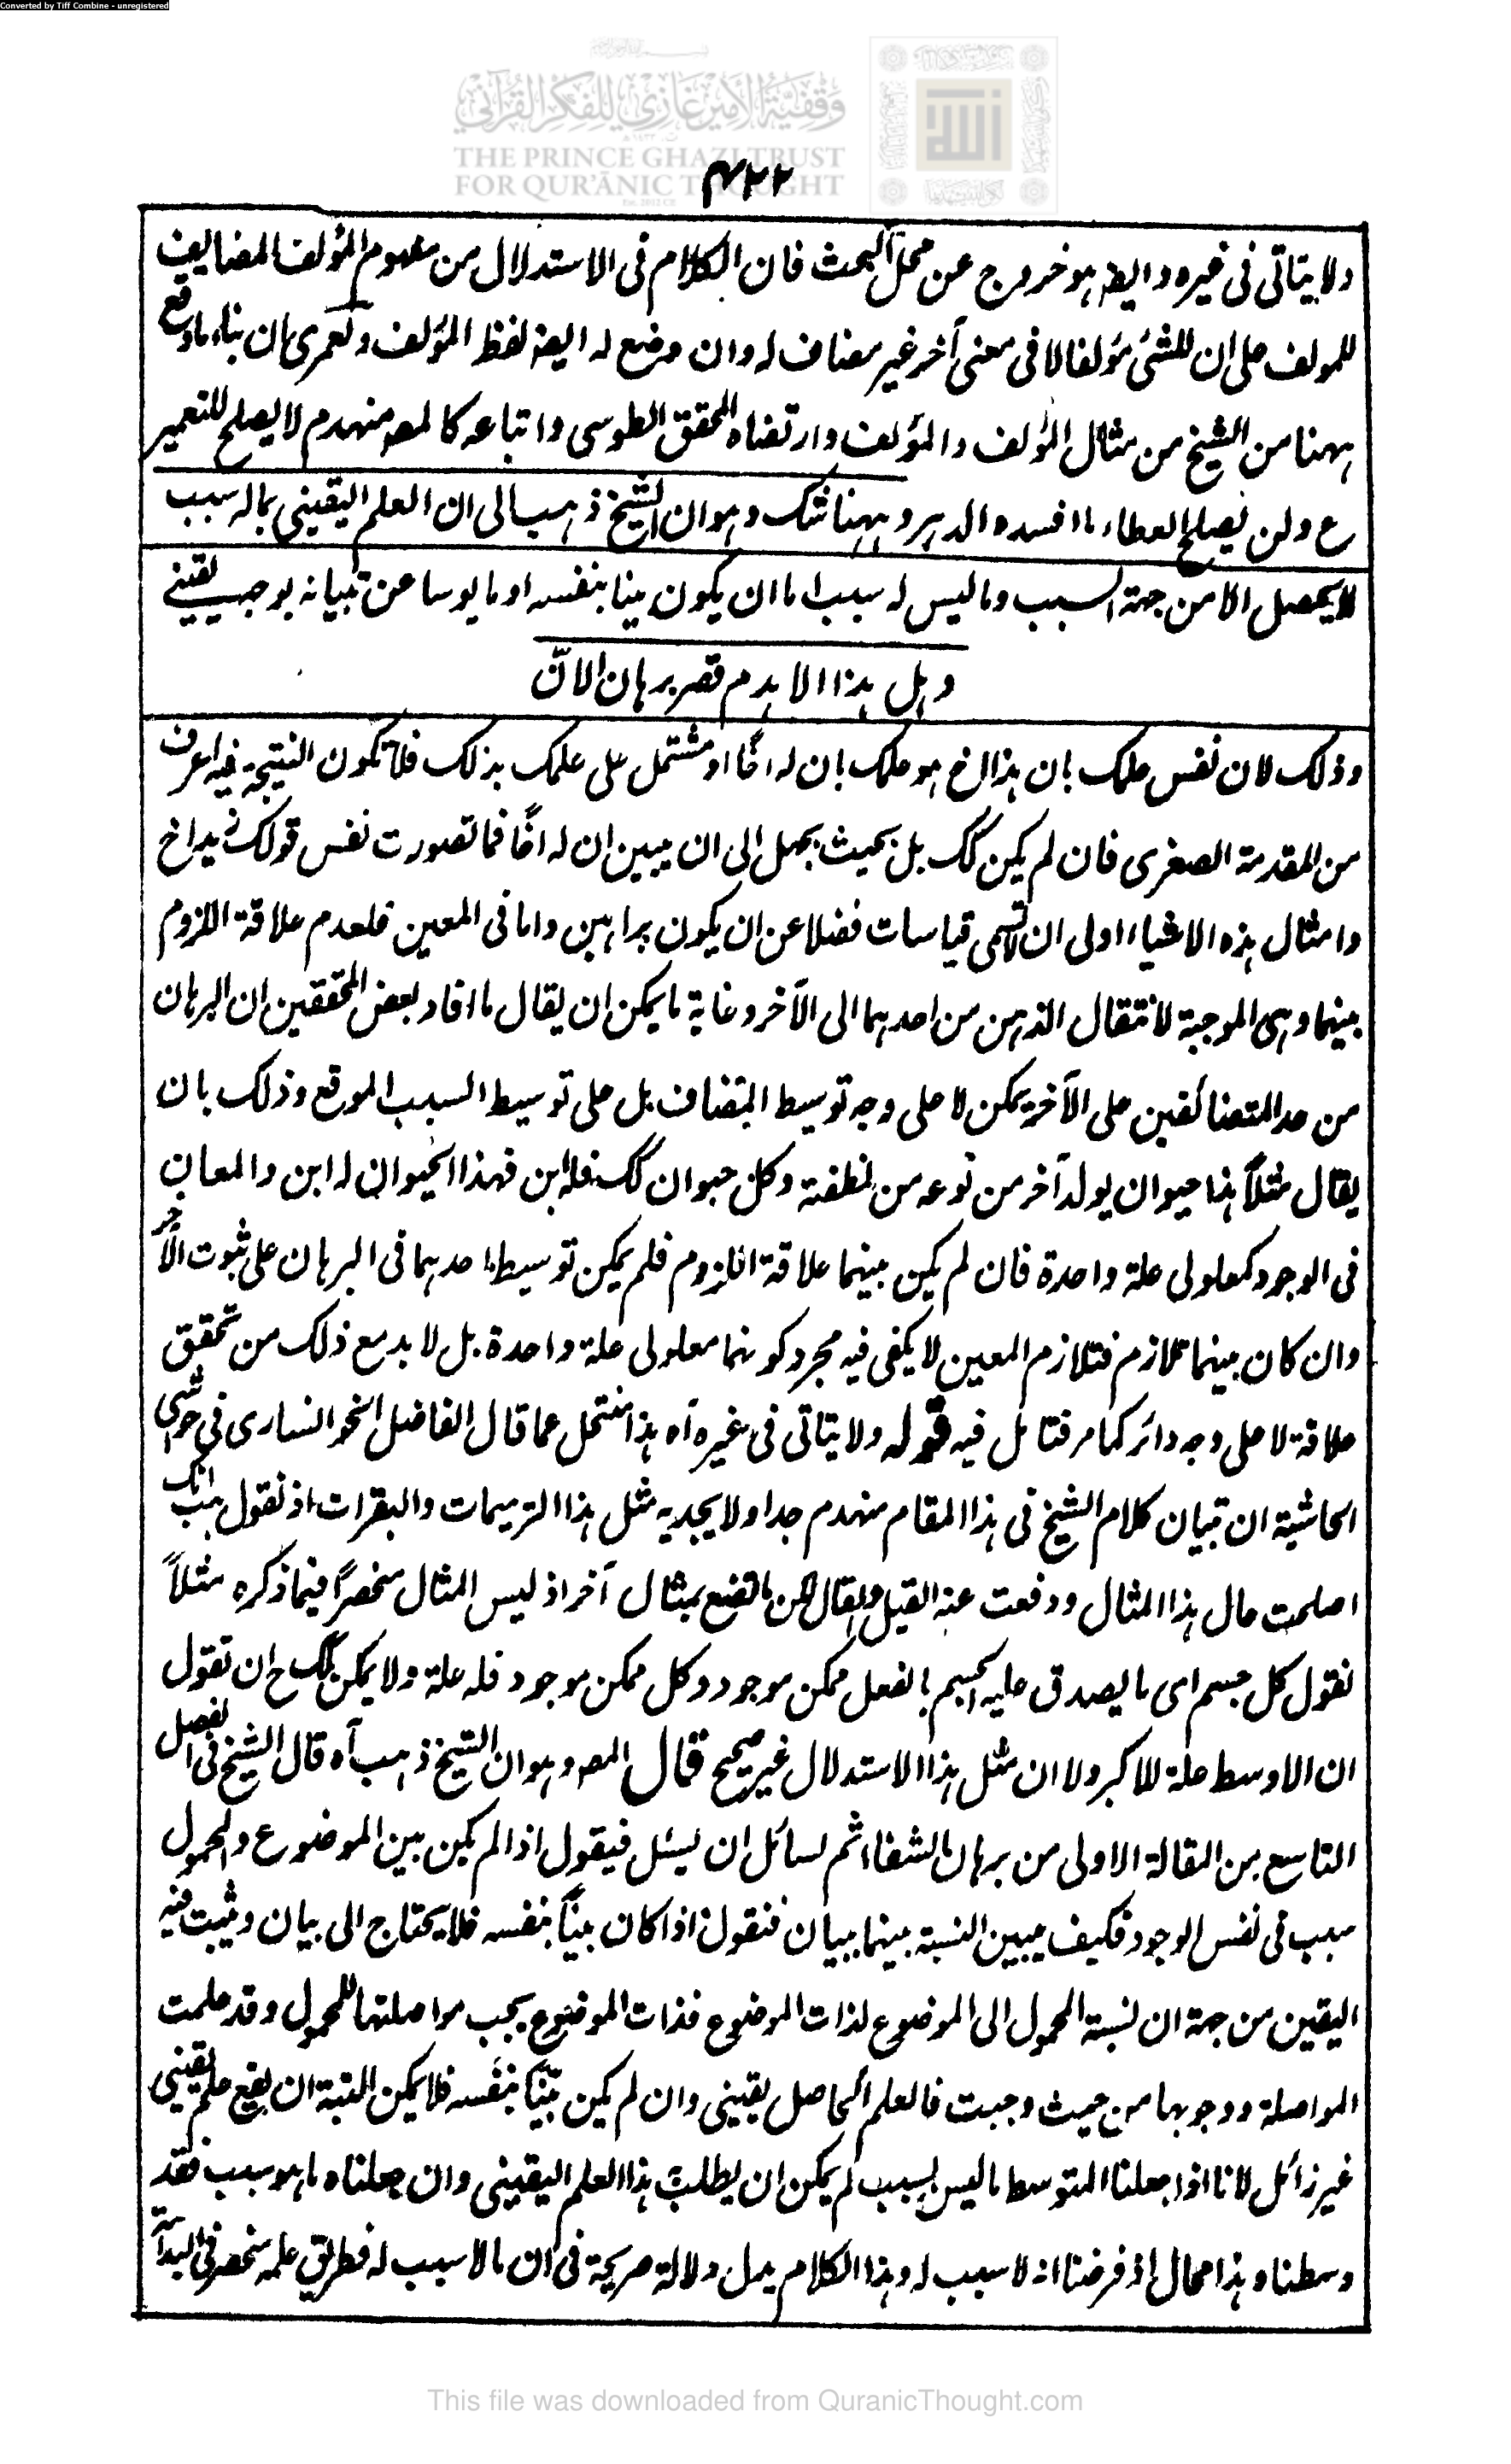 Converted by Tiff Combine - unregistered
وقفية الأمير غازي للفكر القرآني
THE PRINCE GHAZI TRUST
FOR QUR'ĀNIC THOUGHT
۴۲۲
ولا يتاتى فى غيره وايضا هو خروج عن محل البحث فان الكلام فى الاستدلال من مفهوم المؤلف المضايف
للمولف على ان للشئ مؤلفا لا فى معنى آخر غير مضاف له وان وضع له ايضا لفظ المؤلف ولعمرى ان بناء ما وقع
ههنا من الشيخ من مثال المؤلف والمؤلف وارتضاه المحقق الطوسى واتباعه كالمصه منهدم لا يصلح للتعمير
ع ولن يصلح العطاء ما افسده الدهر وههنا شك وهو ان الشيخ ذهب الى ان العلم اليقينى بماله سبب
لا يحصل الا من جهة السبب وما ليس له سبب اما ان يكون بينا بنفسه او مايوسا عن تبيانه بوجه يقينى
وهل هذا الا هدم قصر برهان الانّ
وذلك لان نفس علمك بان هذا اخ هو علمك بان له اخًا او مشتمل على علمك بذلك فلا تكون النتيجة فيه اعرف
من المقدمة الصغرى فان لم يكن كك بل بحيث يجهل الى ان يبين ان له اخًا فما تصورت نفس قولك زيد اخ
وامثال هذه الاشياء اولى ان لا تسمى قياسات فضلا عن ان يكون براهين واما فى المعين فلعدم علاقة اللزوم
بينهما وهى الموجبة لانتقال الذهن من احدهما الى الآخر وغاية ما يمكن ان يقال ما افاد بعض المحققين ان البرهان
من حد المتضائفين على الآخر يمكن لا على وجه توسيط المتضاف بل على توسيط السبب الموقع وذلك بان
يقال مثلاً هذا حيوان يولد آخر من نوعه من نطفته وكل حيوان كك فله ابن فهذا الحيوان له ابن والمعان
فى الوجود كمعلولى علة واحدة فان لم يكن بينهما علاقة اللزوم فلم يمكن توسيط احدهما فى البرهان على ثبوت الآخر
وان كان بينهما تلازم فتلازم المعين لا يكفى فيه مجرد كونهما معلولى علة واحدة بل لا بد مع ذلك من تحقق
علاقة لا على وجه دائر كما مر فتامل فيه قوله ولا يتاتى فى غيره آه هذا منتحل عما قال الفاضل الخوانسارى فى حواشى
الحاشية ان تبيان كلام الشيخ فى هذا المقام منهدم جدا ولا يجديه مثل هذا الترميمات والبقرات اذ نقول هب انك
اصلحت حال هذا المثال ودفعت عنه القيل والقال لكن ما تصنع بمثال آخر اذ ليس المثال منحصرًا فيما ذكره مثلاً
نقول كل جسم اى ما يصدق عليه الجسم بالفعل ممكن موجود وكل ممكن موجود فله علة ولا يمكن لك ح ان تقول
ان الاوسط علة للاكبر ولا ان مثل هذا الاستدلال غير صحيح قال المصه وهو ان الشيخ ذهب آه قال الشيخ فى الفصل
التاسع من المقالة الاولى من برهان الشفاء ثم لسائل ان يسئل فيقول اذا لم يكن بين الموضوع والمحمول
سبب فى نفس الوجود فكيف يبين النسبة بينهما ببيان فنقول اذا كان بينًا بنفسه فلا يحتاج الى بيان ويثبت فيه
اليقين من جهة ان نسبة المحمول الى الموضوع لذات الموضوع فذات الموضوع يجب مواصلتها للمحمول وقد علمت
المواصلة ووجوبها من حيث وجبت فالعلم الحاصل يقينى وان لم يكن بيّنًا بنفسه فلا يمكن البتة ان يقع علم يقينى
غير زائل لانا اذا جعلنا المتوسط ما ليس بسبب لم يمكن ان يطلب هذا العلم اليقينى وان جعلناه ما هو سبب فقد
وسطنا وهذا محال اذ فرضنا انه لا سبب له وهذا الكلام يدل دلالة صريحة فى ان ما لا سبب له فطريق علمه منحصر فى البداهة
This file was downloaded from QuranicThought.com